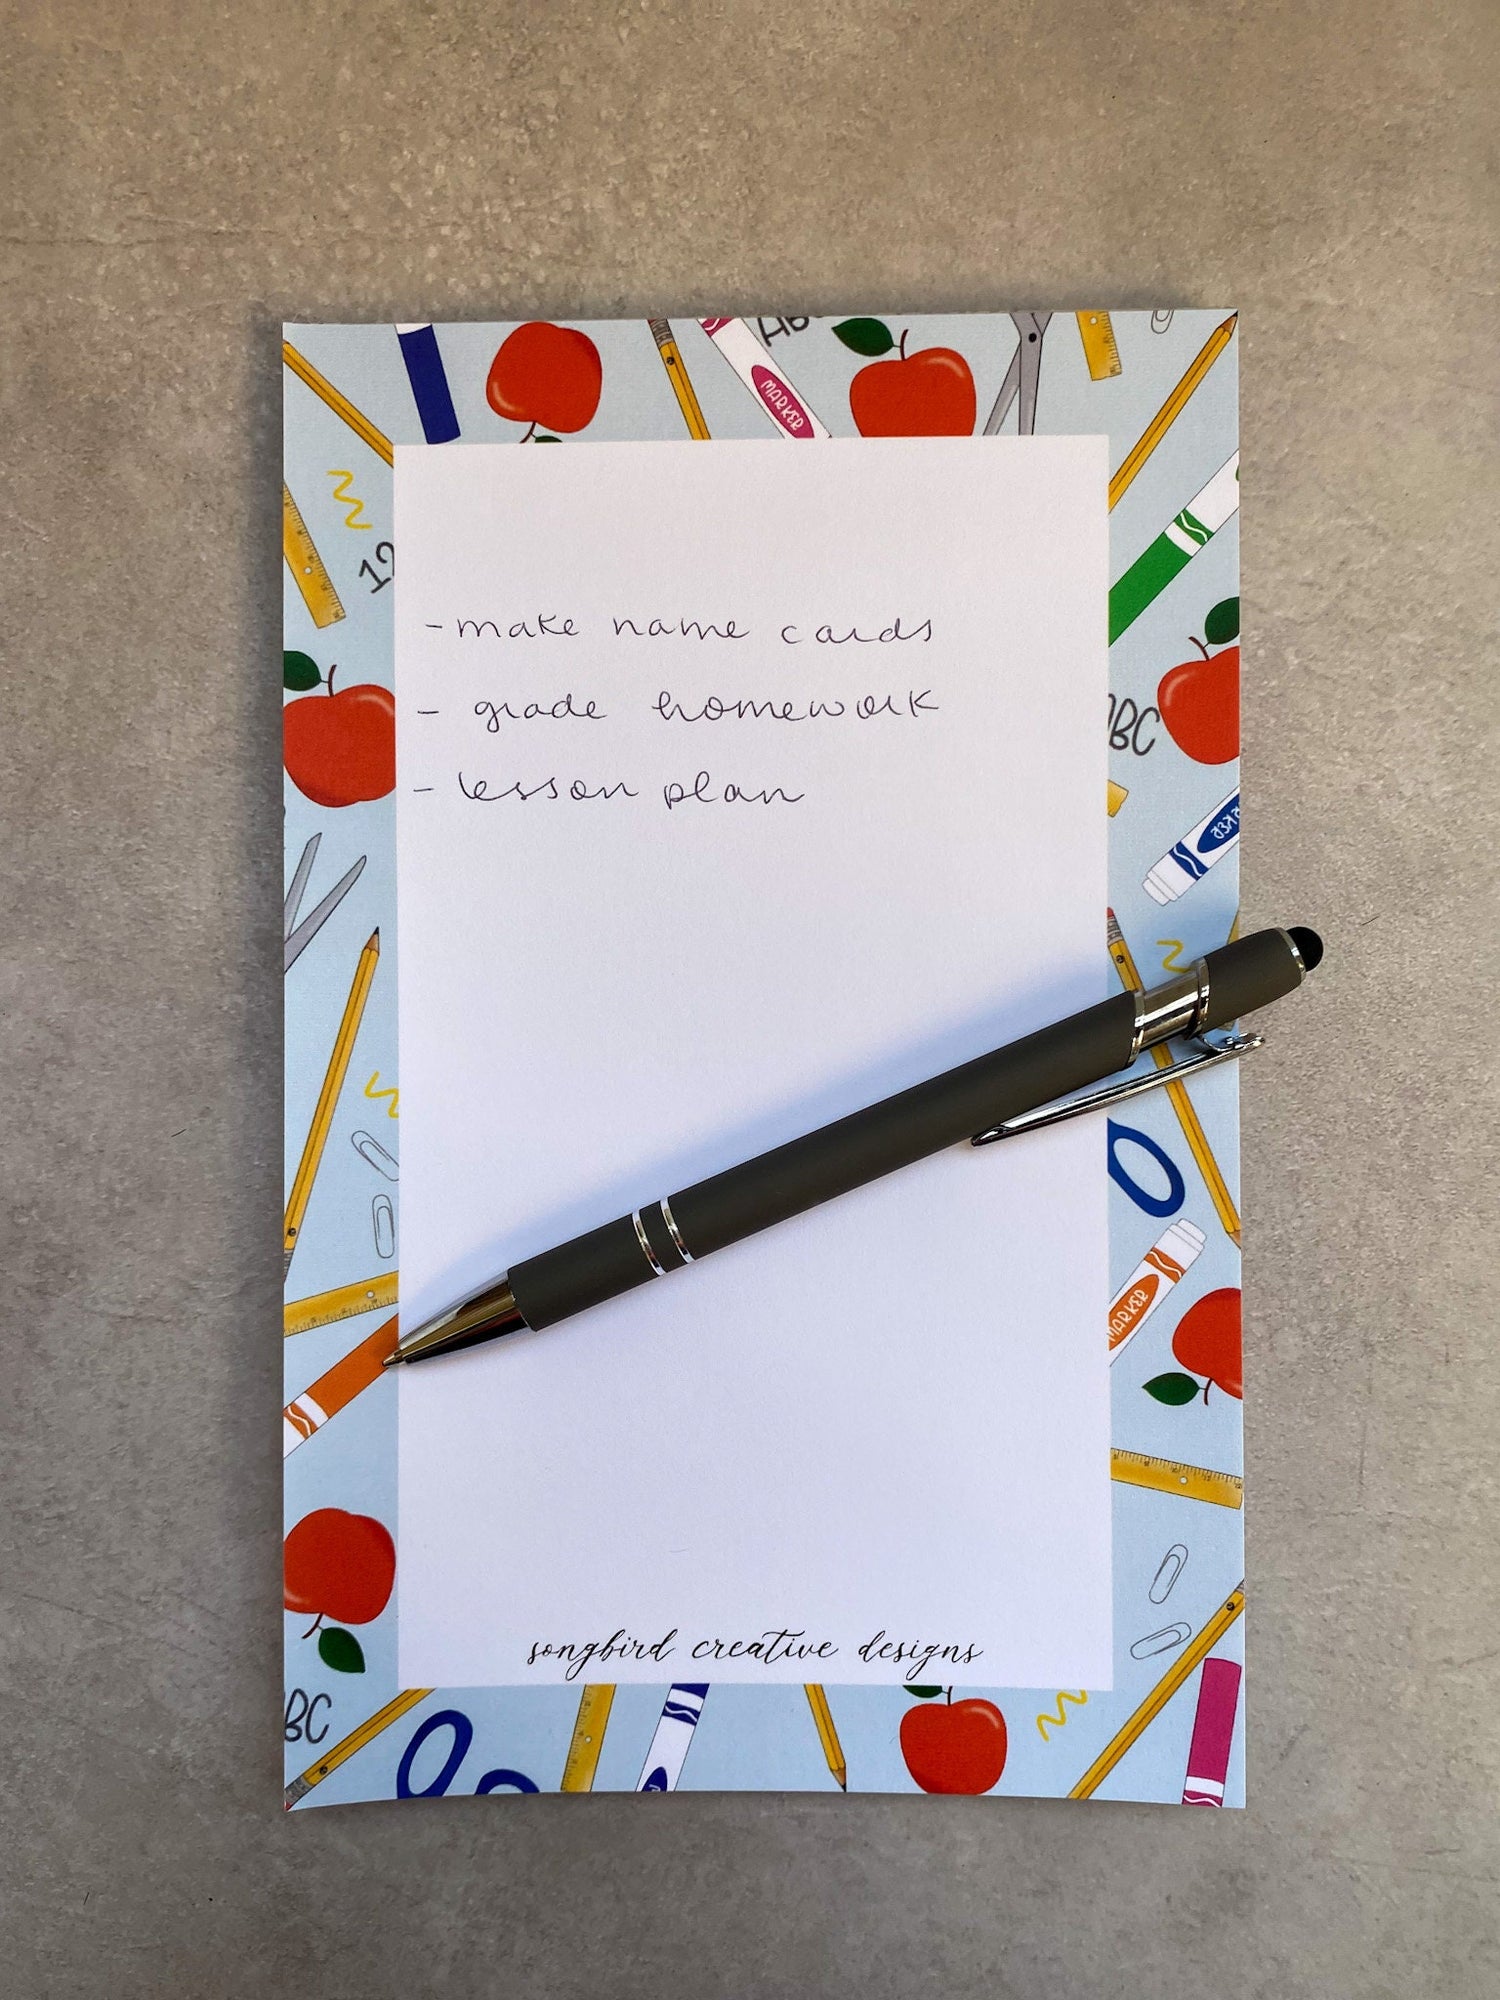 MARKER
12
- make name cards
- grade homework
ABC
- lesson plan
MARKER
songbird creative designs
BC